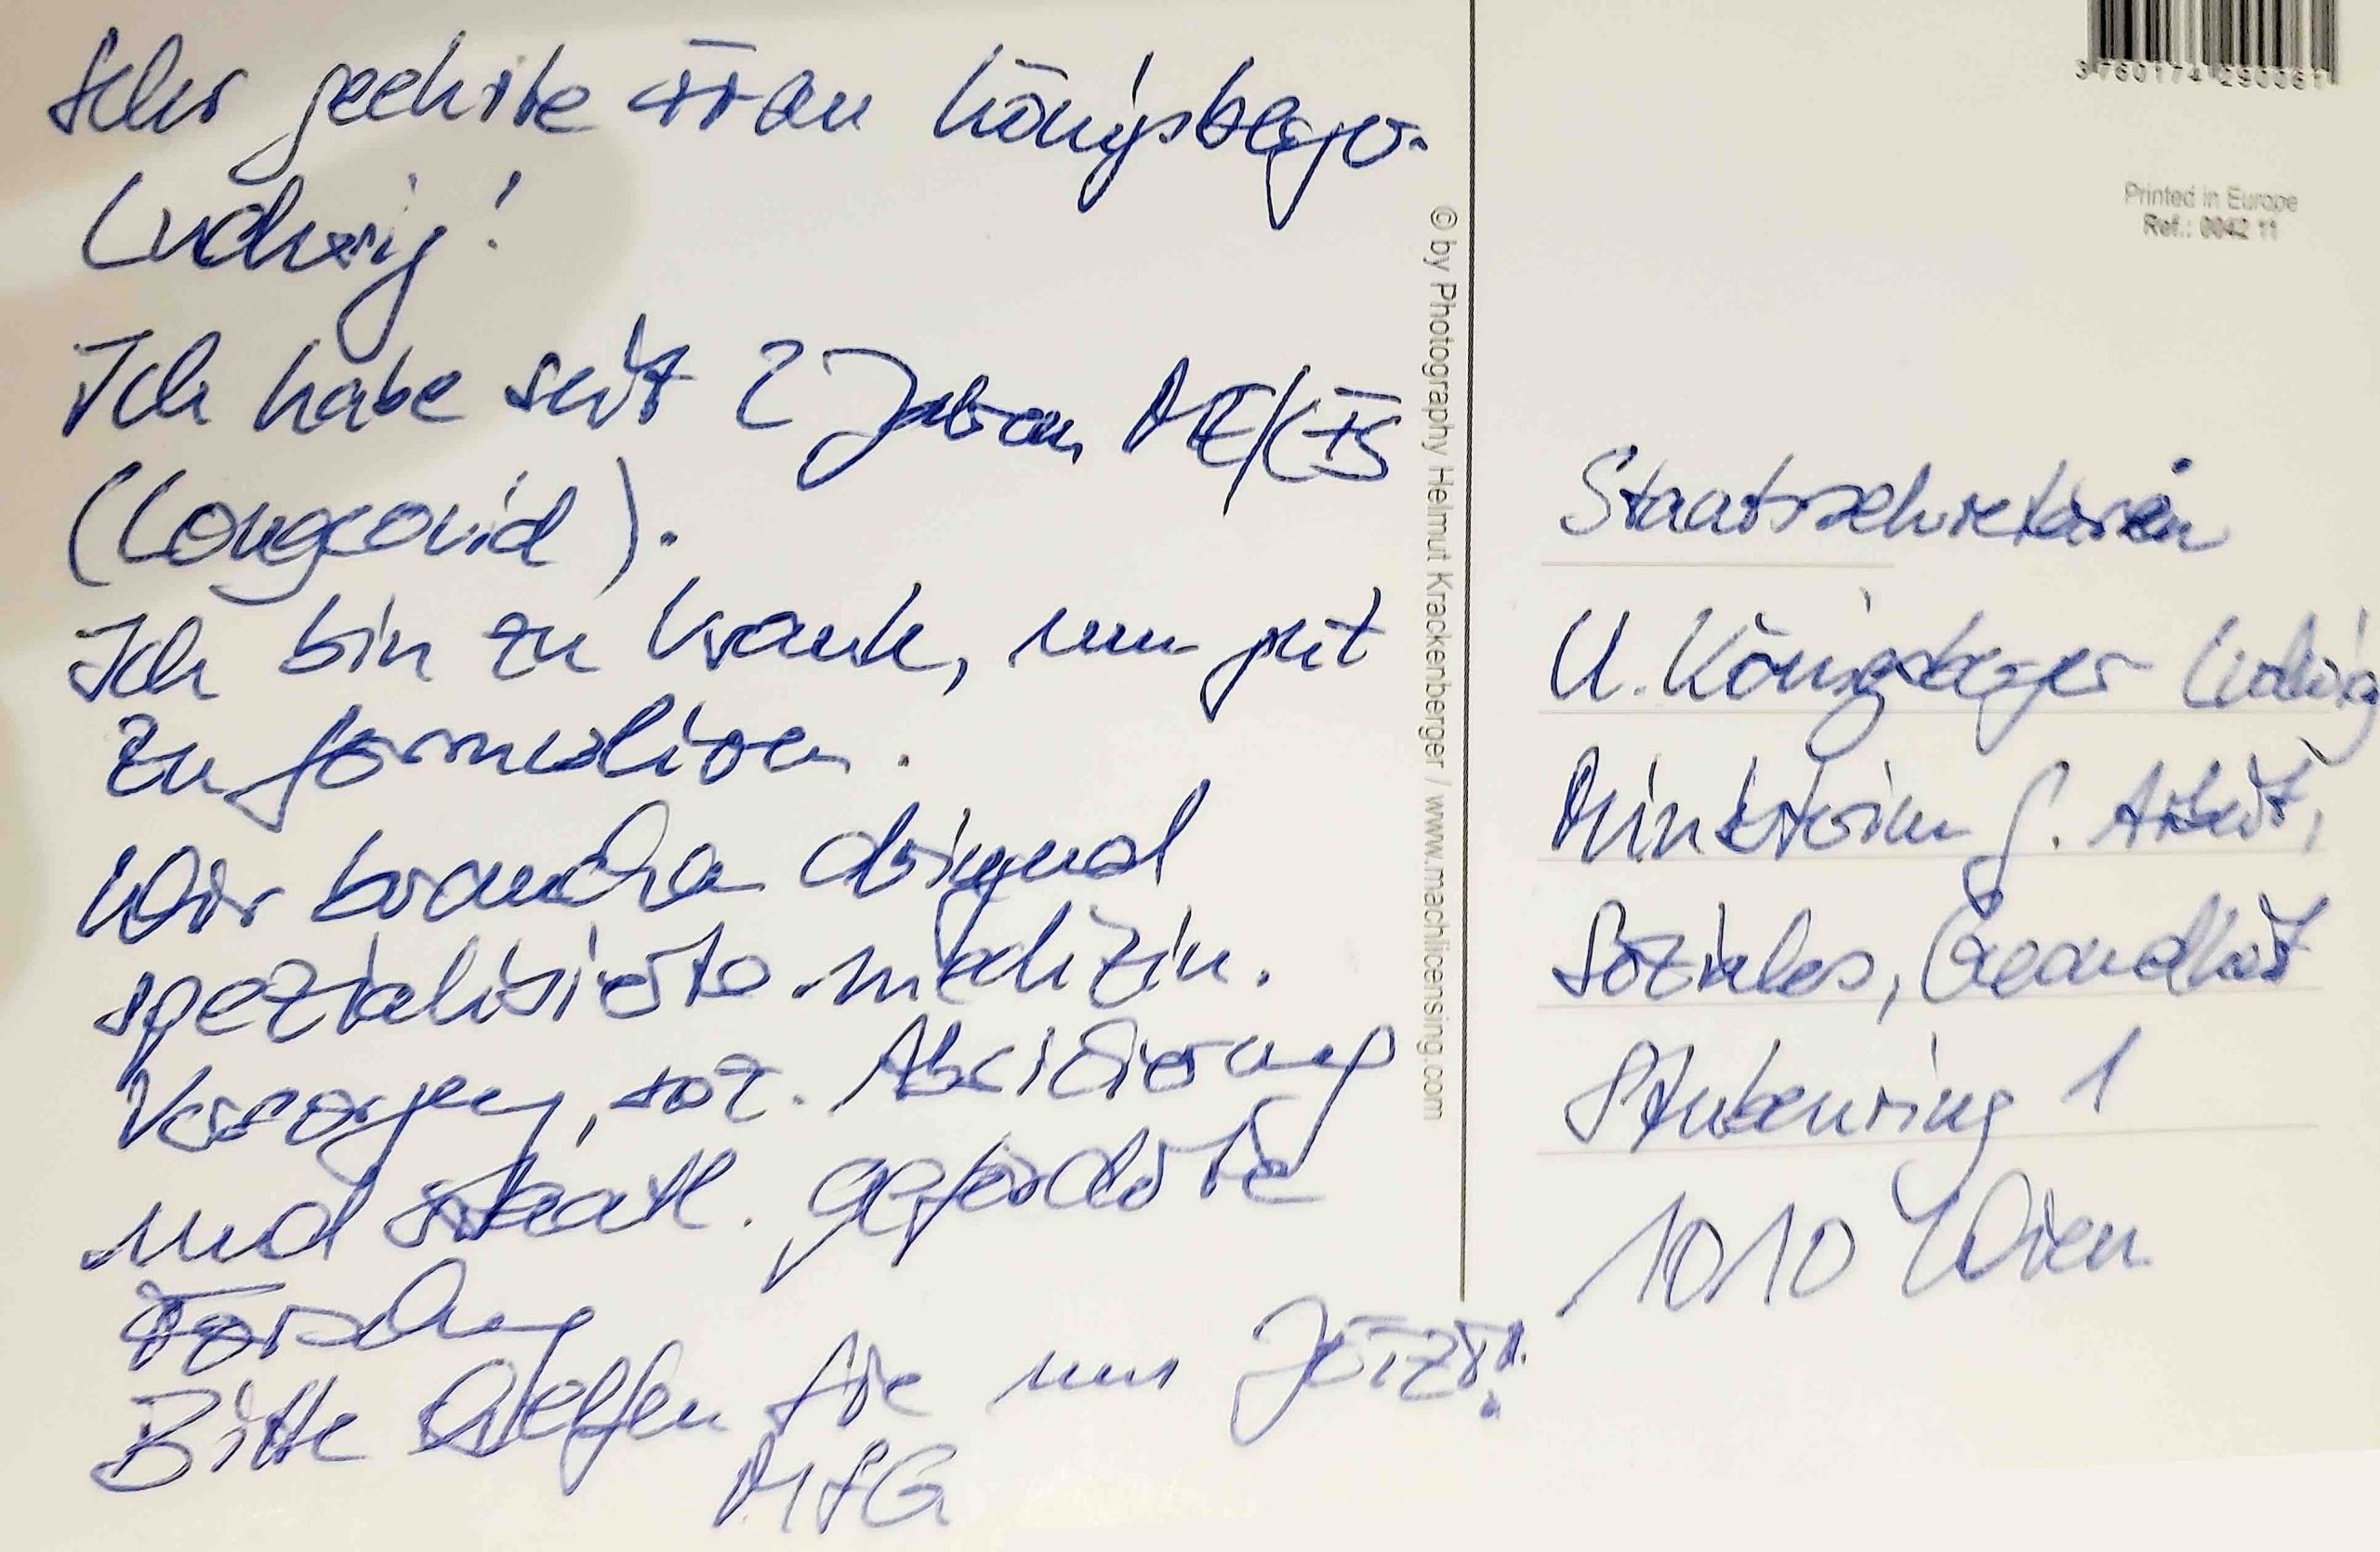 Sehr geehrte Frau Königsberger-
Ludwig!
Ich habe seit 2 Jahren ME/CFS
(Longcovid).
Ich bin zu krank, um gut
zu formulieren.
Wir brauchen dringend
spezialisierte medizin.
Versorgung, soz. Absicherung
und staatl. geförderte
Forschung
Bitte helfen Sie uns JETZT!
MFG
© by Photography Helmut Krackenberger / www.machlicensing.com
3 760174 290061
Printed in Europe
Ref.: 0042 11
Staatssekretärin
U. Königsberger Ludwig
Ministerium f. Arbeit,
Soziales, Gesundheit
Stubenring 1
1010 Wien